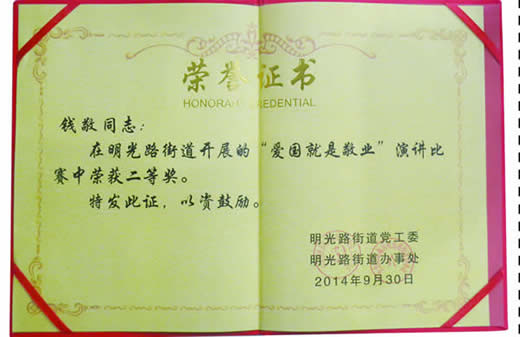 荣誉证书
HONORA CREDENTIAL
钱敬同志：
在明光路街道开展的“爱国就是敬业”演讲比
赛中荣获二等奖。
特发此证，以资鼓励。
明光路街道党工委
明光路街道办事处
2014年9月30日